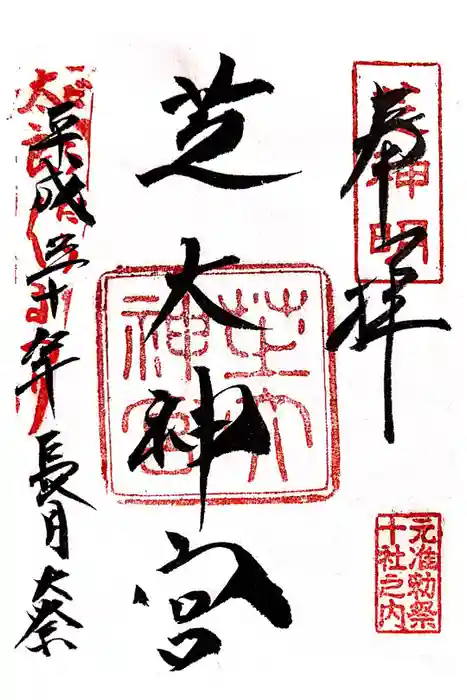 奉拝
芝神明
元准勅祭
十社之内
芝大神宮
芝大
神宮
平成三十年長月大祭